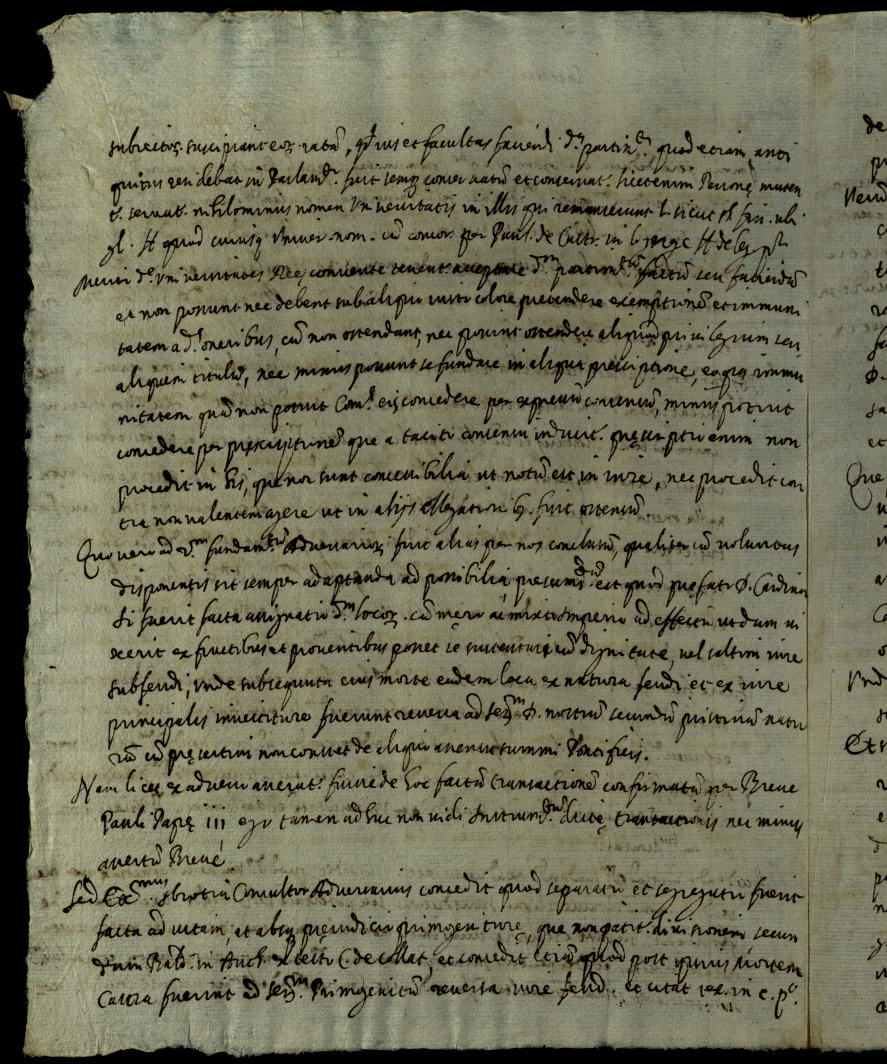 subiectos suscipiant eos ratū, qd ius et facultas faciendi dm partim.m quod etiam anti
quitus residebat in Parlam.º fuit semp conservatū et conservat. licet enim personę muten
t. servat. nihilominus nomen Universitatis in illis qui remanserunt l. sicut
gl. ff quod cuiusq univer. nom. cū concor. per Paul. de Castr. in l.
Universitates nec
et non possunt nec debent sub aliquo iuris colore pretendere exemptionē et immuni
tatem a d.s oneribus, cū non ostendant, nec possint ostendere aliquod privilegium seu
aliquem titulū, nec minus possunt se fundare in aliqua prescriptione, immu
nitatem quā non potuit Com.s eis concedere per expressū consensū, minus potuit
concedere per pręscriptionē que a tacito consensu inducit. pręscriptio enim non
procedit in his, que non sunt concessibilia ut notū est in iure, nec procedit con
tra non valentem agere ut in alijs allegationibȝ fuit ostensū.
Quo vero ad 2.m fundam.tū Adversarioꝝ fuit alias per nos conclusū, qualiter cū voluntas
disponentis sit semper adaptanda ad possibilia, presumēdū est quod prefato D. Cardina
li fuerit facta assignatio dm locoꝝ cū mero ac mixto imperio ad effectū ut dum vi
xerit ex fructibus et proventibus posset se sustentare cū dignitate, vel saltim iure
subfeudi, unde subsequuta eius morte eadem loca ex natura feudi et ex iure
principalis investiture fuerunt reversa ad Sez.m D. nostrū secundū pristinū natu
rā cū pręsertim non constet de aliquo assensu summi Pontificis.
Nam licet ex adverso asserat. fuisse de hoc factā transactionē confirmatā per Breve
Pauli Papę iii ego tamen adhuc non vidi Instrum.tum dictę transactionis nec minus
assertū Breve.
Sed Ex.mus Consultor Adversarius concedit quod separatio et segregatio fuerit
facta ad vitam, et absq pręiudicio primogeniturę, que non patit. divisionem secun
dum Bald. in Auth. ex testo C. de collat., et concedit etiā quod post ipsius mortem
Castra fuerint ad Sez.m Primogenitū reversa iure feud. et citat tex. in c. p.º